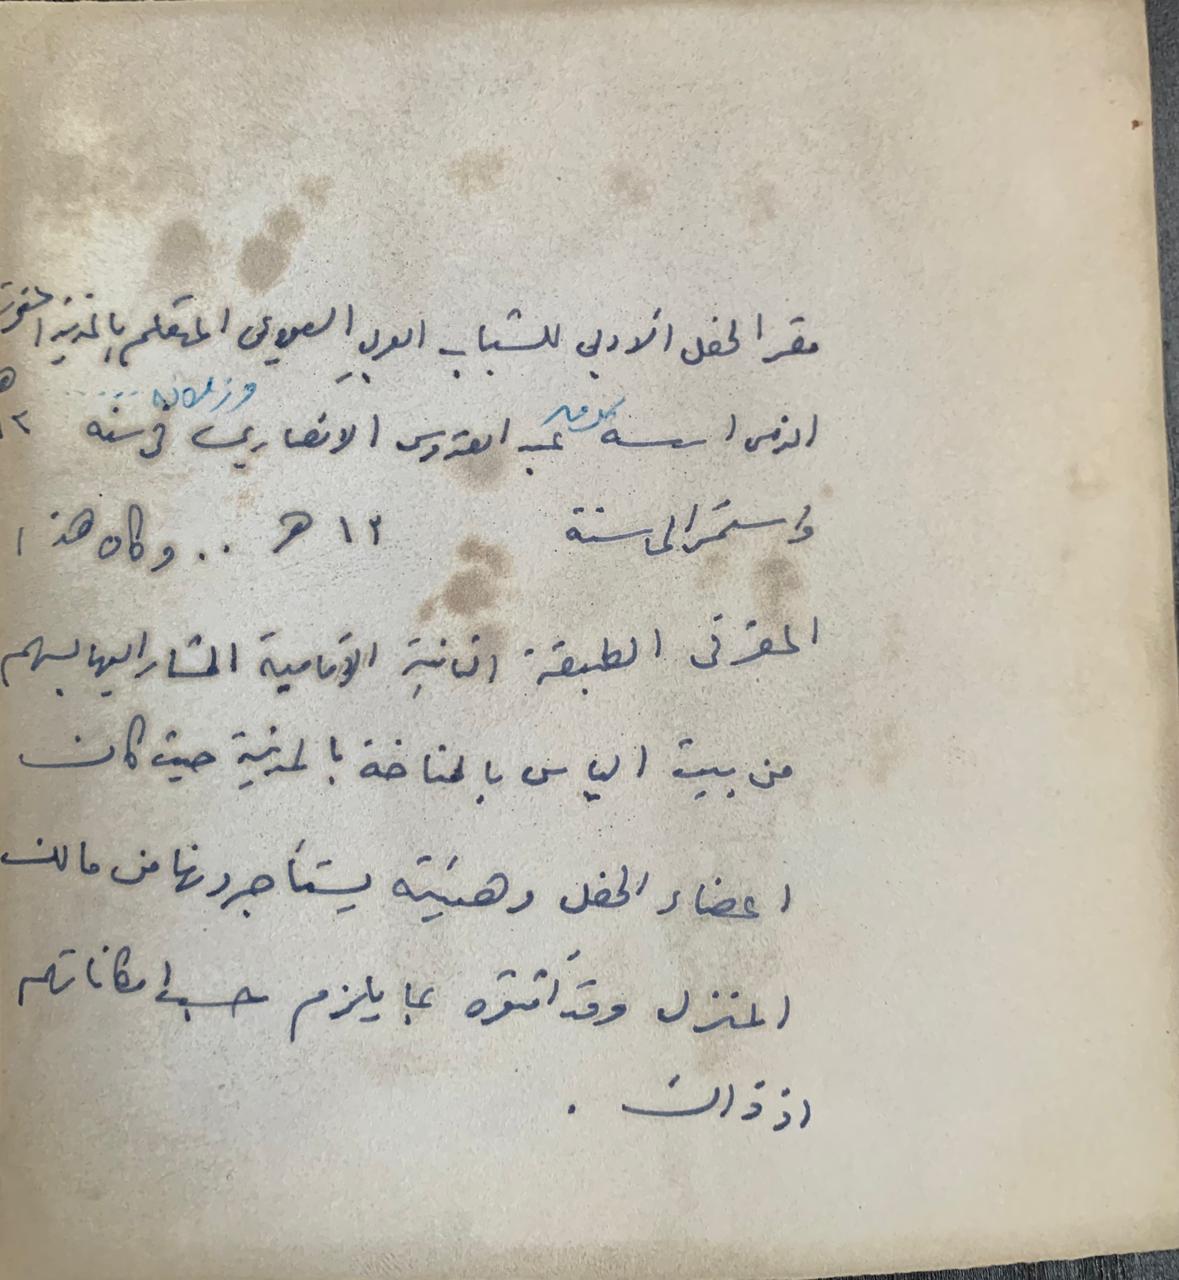 مقر الحفل الادبي للشباب العربي السعودي المتعلم بالمدينة المنورة
وزملاؤه .....
الذي اسسه عبد القدوس الانصاري في سنة ١٢ هـ
واستمر الى سنة ١٢ هـ .. وكان هذا
المقر في الطبقة الثانية الامامية المشار اليها بسهم
من بيت الياس بالمناخة بالمدينة حيث كان
اعضاء الحفل وهيئته يستأجرونها من مالك
المنزل وقد أثثوه بما يلزم حسب امكاناتهم
اذ ذاك .